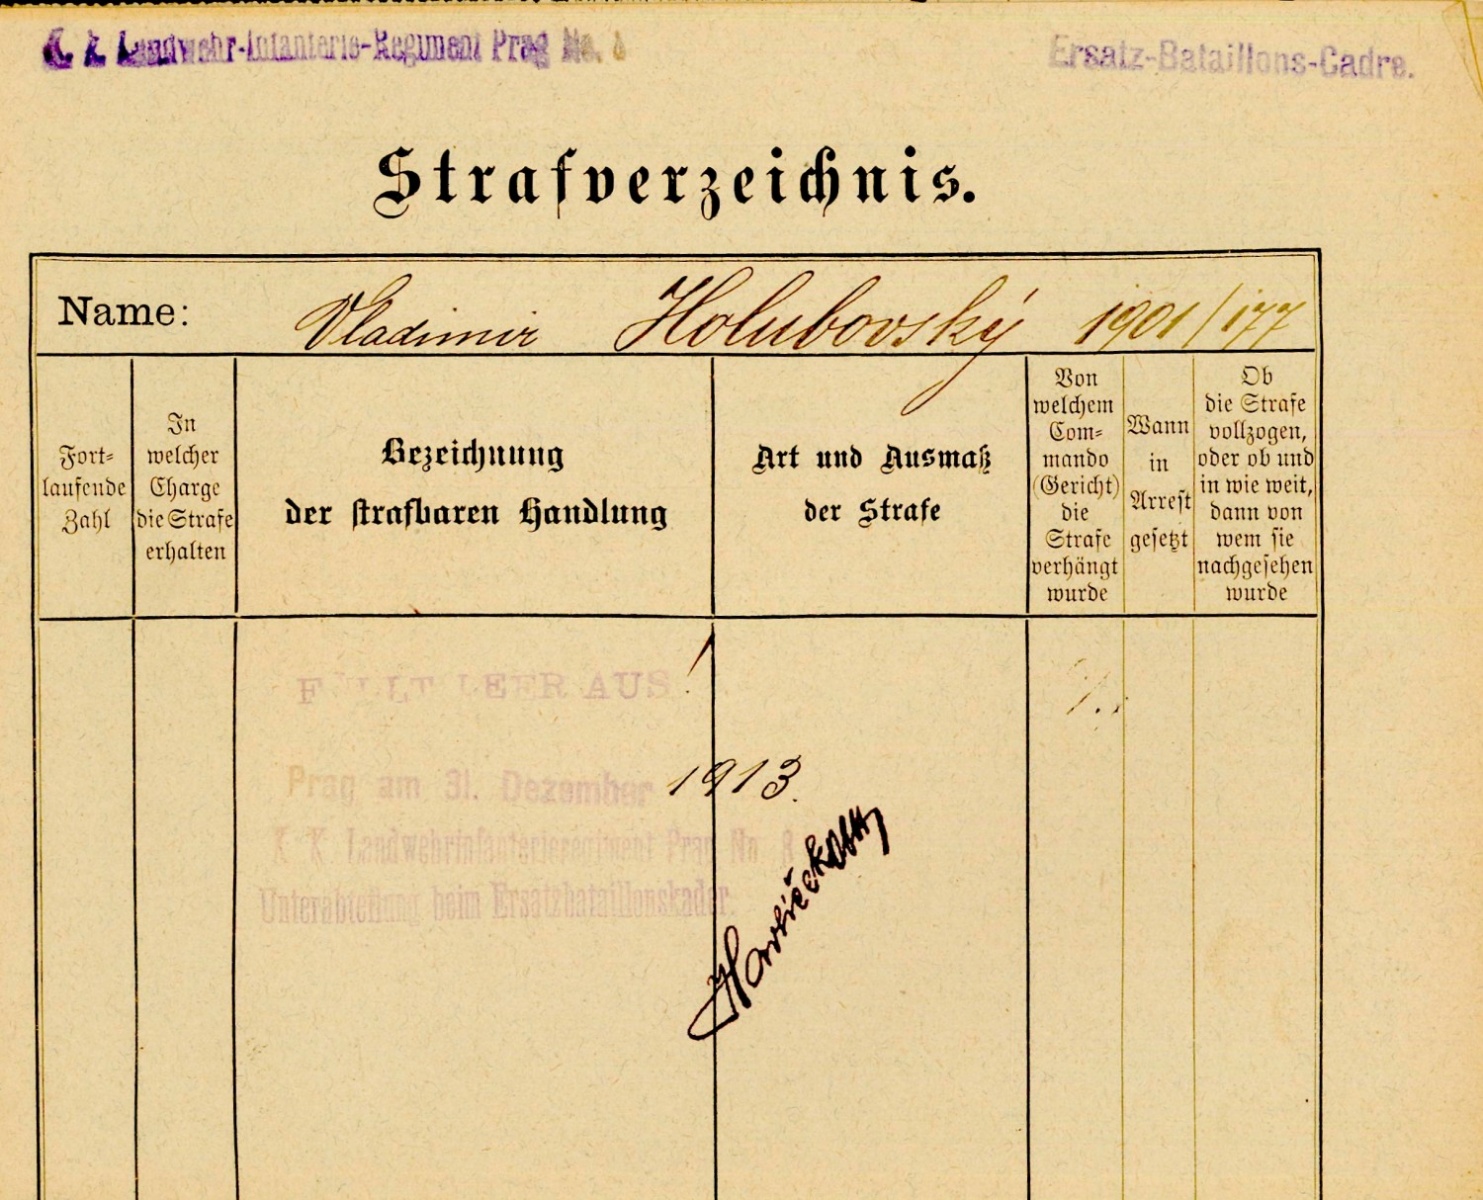 K. k. Landwehr-Infanterie-Regiment Prag No. 8
Ersatz-Bataillons-Cadre.
Strafverzeichnis.
Name: Vladimir Holubovský 1901/177
Fort-
laufende
Zahl
In
welcher
Charge
die Strafe
erhalten
Bezeichnung
der strafbaren Handlung
Art und Ausmaß
der Strafe
Von
welchem
Com-
mando
(Gericht)
die
Strafe
verhängt
wurde
Wann
in
Arrest
gesetzt
Ob
die Strafe
vollzogen,
oder ob und
in wie weit,
dann von
wem sie
nachgesehen
wurde
FÄLLT LEER AUS!
Prag am 31. Dezember 1913.
K. K. Landwehrinfanterieregiment Prag No. 8
Unterabteilung beim Ersatzbataillonskader.